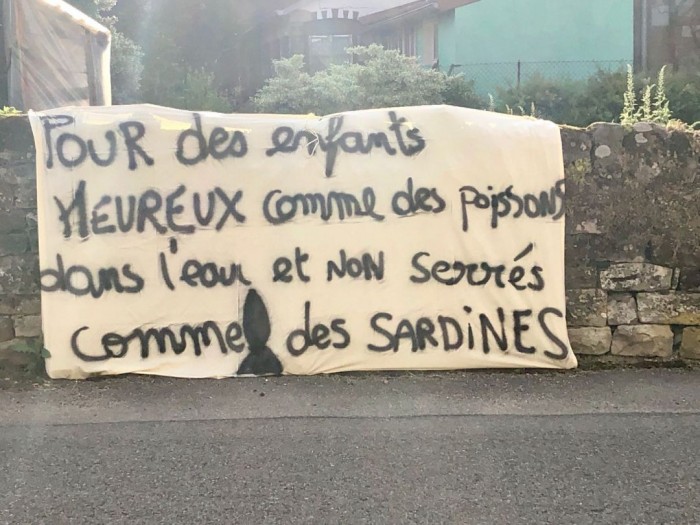 POUR des enfants
HEUREUX comme des poissons
dans l'eau et NON serrés
comme des SARDiNES